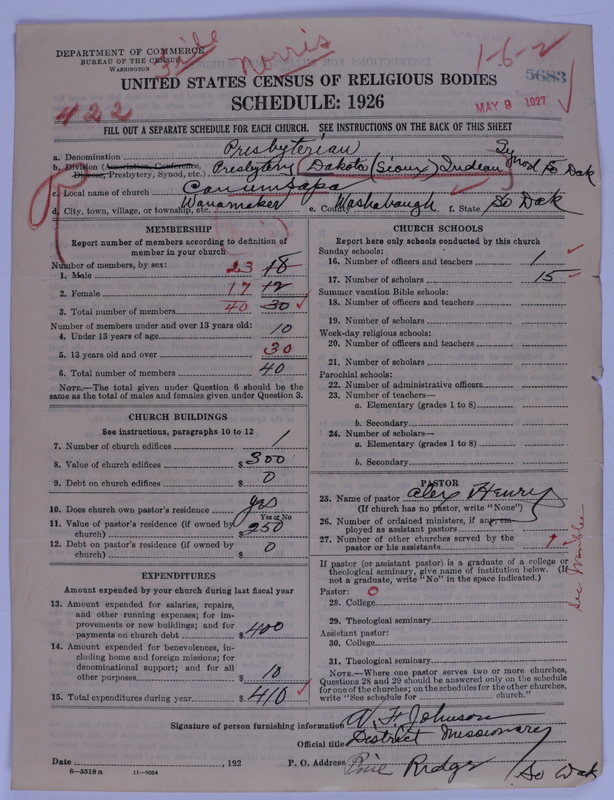 DEPARTMENT OF COMMERCE
BUREAU OF THE CENSUS
WASHINGTON
File Norris
1-6-2
5683
422
MAY 9 1927
UNITED STATES CENSUS OF RELIGIOUS BODIES
SCHEDULE: 1926
FILL OUT A SEPARATE SCHEDULE FOR EACH CHURCH. SEE INSTRUCTIONS ON THE BACK OF THIS SHEET
a. Denomination Presbyterian
b. Division (Association, Conference, Diocese, Presbytery, Synod, etc.) Presbytery Dakota (Sioux) Indian Synod So Dak
c. Local name of church Canumsapa
d. City, town, village, or township, etc. Wanamaker e. County Washabaugh f. State So Dak
MEMBERSHIP
Report number of members according to definition of member in your church
Number of members, by sex:
1. Male 23 18
2. Female 17 12
3. Total number of members 40 30
Number of members under and over 13 years old:
4. Under 13 years of age 10
5. 13 years old and over 30
6. Total number of members 40
NOTE.—The total given under Question 6 should be the same as the total of males and females given under Question 3.
CHURCH BUILDINGS
See instructions, paragraphs 10 to 12
7. Number of church edifices 1
8. Value of church edifices $ 300
9. Debt on church edifices $ 0
10. Does church own pastor's residence yes
Yes or No
11. Value of pastor's residence (if owned by church) $ 250
12. Debt on pastor's residence (if owned by church) $ 0
EXPENDITURES
Amount expended by your church during last fiscal year
13. Amount expended for salaries, repairs, and other running expenses; for improvements or new buildings; and for payments on church debt $ 400
14. Amount expended for benevolences, including home and foreign missions; for denominational support; and for all other purposes $ 10
15. Total expenditures during year $ 410
CHURCH SCHOOLS
Report here only schools conducted by this church
Sunday schools:
16. Number of officers and teachers 1
17. Number of scholars 15
Summer vacation Bible schools:
18. Number of officers and teachers
19. Number of scholars
Week-day religious schools:
20. Number of officers and teachers
21. Number of scholars
Parochial schools:
22. Number of administrative officers
23. Number of teachers—
a. Elementary (grades 1 to 8)
b. Secondary
24. Number of scholars—
a. Elementary (grades 1 to 8)
b. Secondary
PASTOR
25. Name of pastor Alex Henry
(If church has no pastor, write "None")
26. Number of ordained ministers, if any, employed as assistant pastors
27. Number of other churches served by the pastor or his assistants
If pastor (or assistant pastor) is a graduate of a college or theological seminary, give name of institution below. (If not a graduate, write "No" in the space indicated.)
Pastor:
28. College
29. Theological seminary
Assistant pastor:
30. College
31. Theological seminary
NOTE.—Where one pastor serves two or more churches, Questions 28 and 29 should be answered only on the schedule for one of the churches; on the schedules for the other churches, write "See schedule for church."
Signature of person furnishing information A. F. Johnson
Official title District Missionary
Date , 192 P. O. Address Pine Ridge, So Dak
8-5518a 11-9254